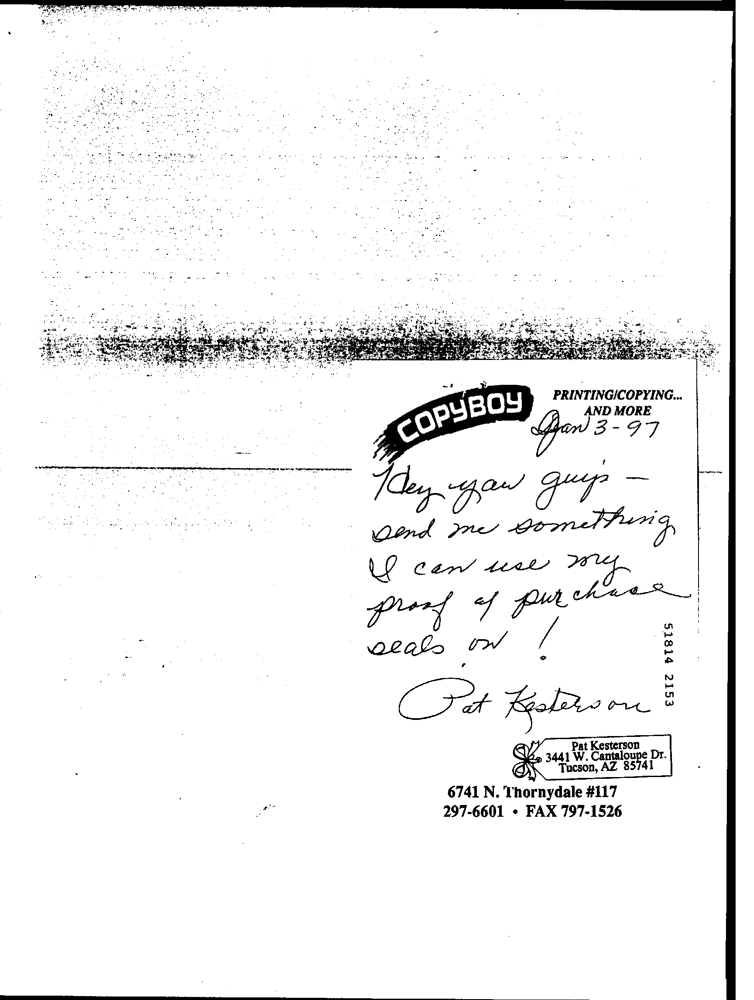 COPYBOY
PRINTING/COPYING...
AND MORE
Jan 3-97
Hey yaw guys —
send me something
I can use my
proof of purchase
seals on !
Pat Kesterson
51814 2153
Pat Kesterson
3441 W. Cantaloupe Dr.
Tucson, AZ 85741
6741 N. Thornydale #117
297-6601 • FAX 797-1526